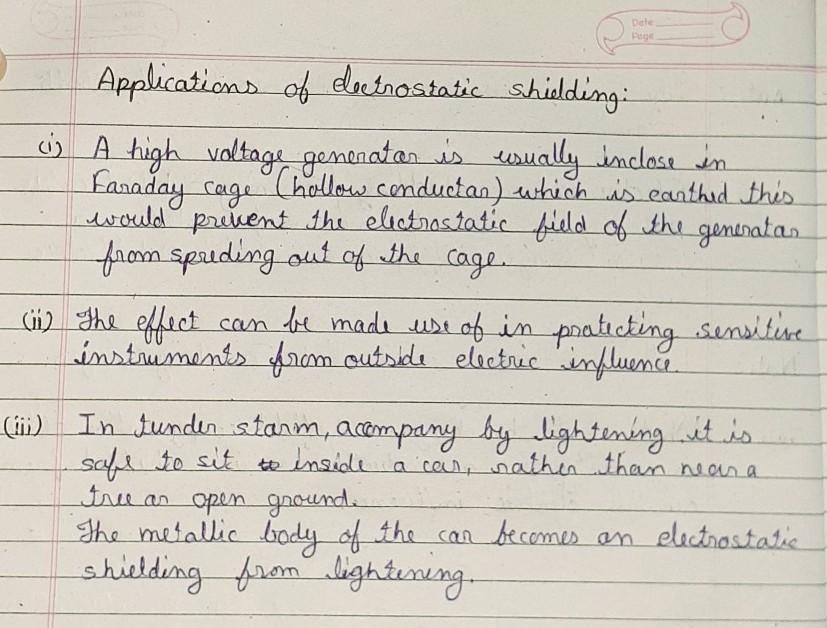 Date
Page
Applications of electrostatic shielding:
(i) A high voltage generator is usually inclose in
Faraday cage (hollow conductor) which is earthed this
would prevent the electrostatic field of the generator
from spreding out of the cage.
(ii) The effect can be made use of in protecting sensitive
instruments from outside electric influence.
(iii) In tunder storm, acompany by lightening it is
safe to sit to inside a car, rather than near a
tree or open ground.
The metallic body of the car becomes an electrostatic
shielding from lightening.